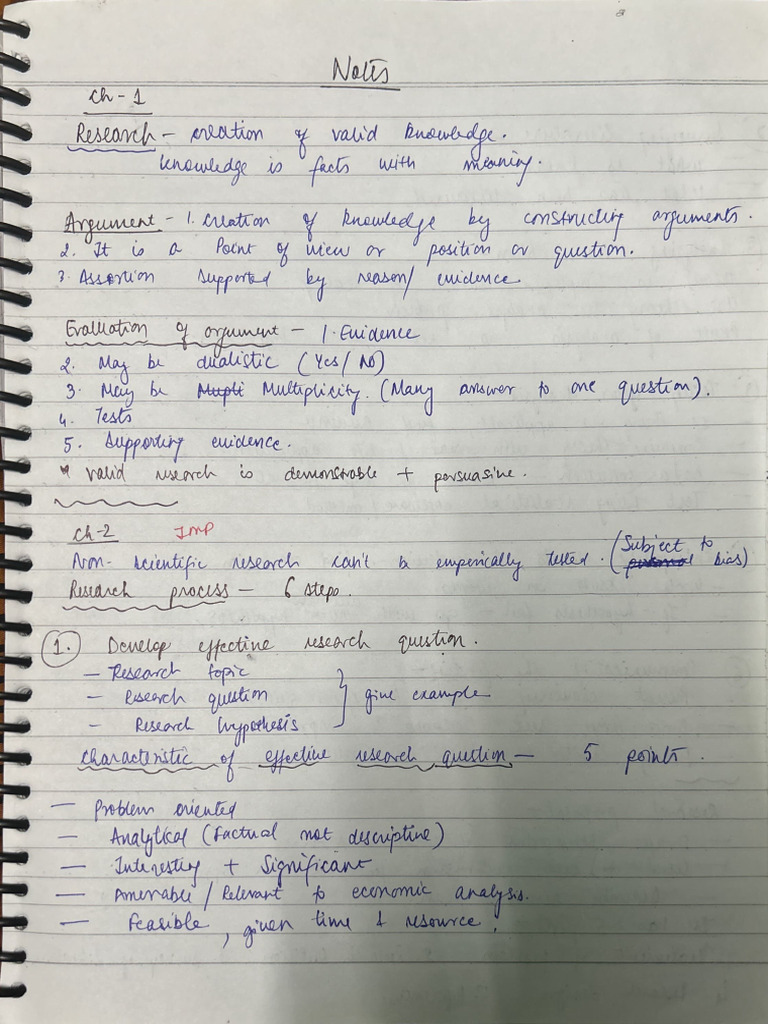 Notes
Ch-1
Research - creation of valid knowledge.
knowledge is facts with meaning.
Argument - 1. Creation of knowledge by constructing arguments.
2. It is a Point of view or position or question.
3. Assertion supported by reason/ evidence
Evaluation of argument - 1. Evidence
2. May be dualistic (Yes/ No)
3. May be Mupti Multiplicity. (Many answer to one question).
4. Tests
5. Supporting evidence.
* valid research is demonstrable + persuasive.
Ch-2 IMP
Non-scientific research can't be emperically tested. (Subject to personal bias)
Research process - 6 steps.
1. Develop effective research question.
- Research topic
- Research question } give example
- Research hypothesis
Characteristic of effective research question - 5 points.
- Problem oriented
- Analytical (factual not descriptive)
- Interesting + Significant
- Amenable / Relevant to economic analysis.
- Feasible, given time & resource.